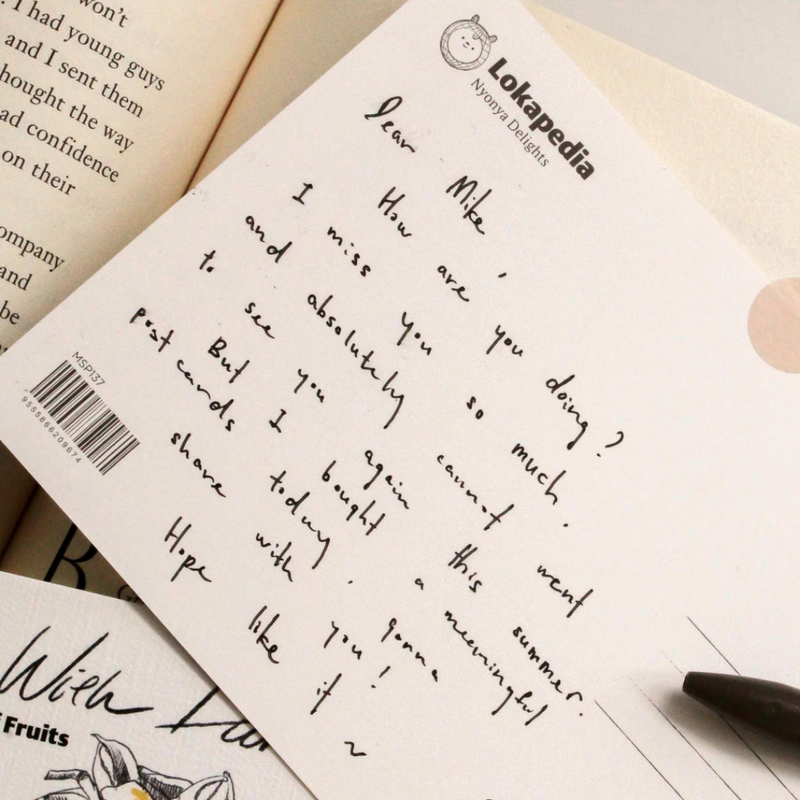 won't
I had young guys
and I sent them
hought the way
ad confidence
on their
ompany
and
be
Lokapedia
Nyonya Delights
Dear Mike,
How are you doing?
I miss you so much.
and absolutely cannot went
to see you again this summer.
But I bought a meaningful
post cards today, gonna
share with you!
Hope like it ~
MSP137
9555866209674
With
Fruits